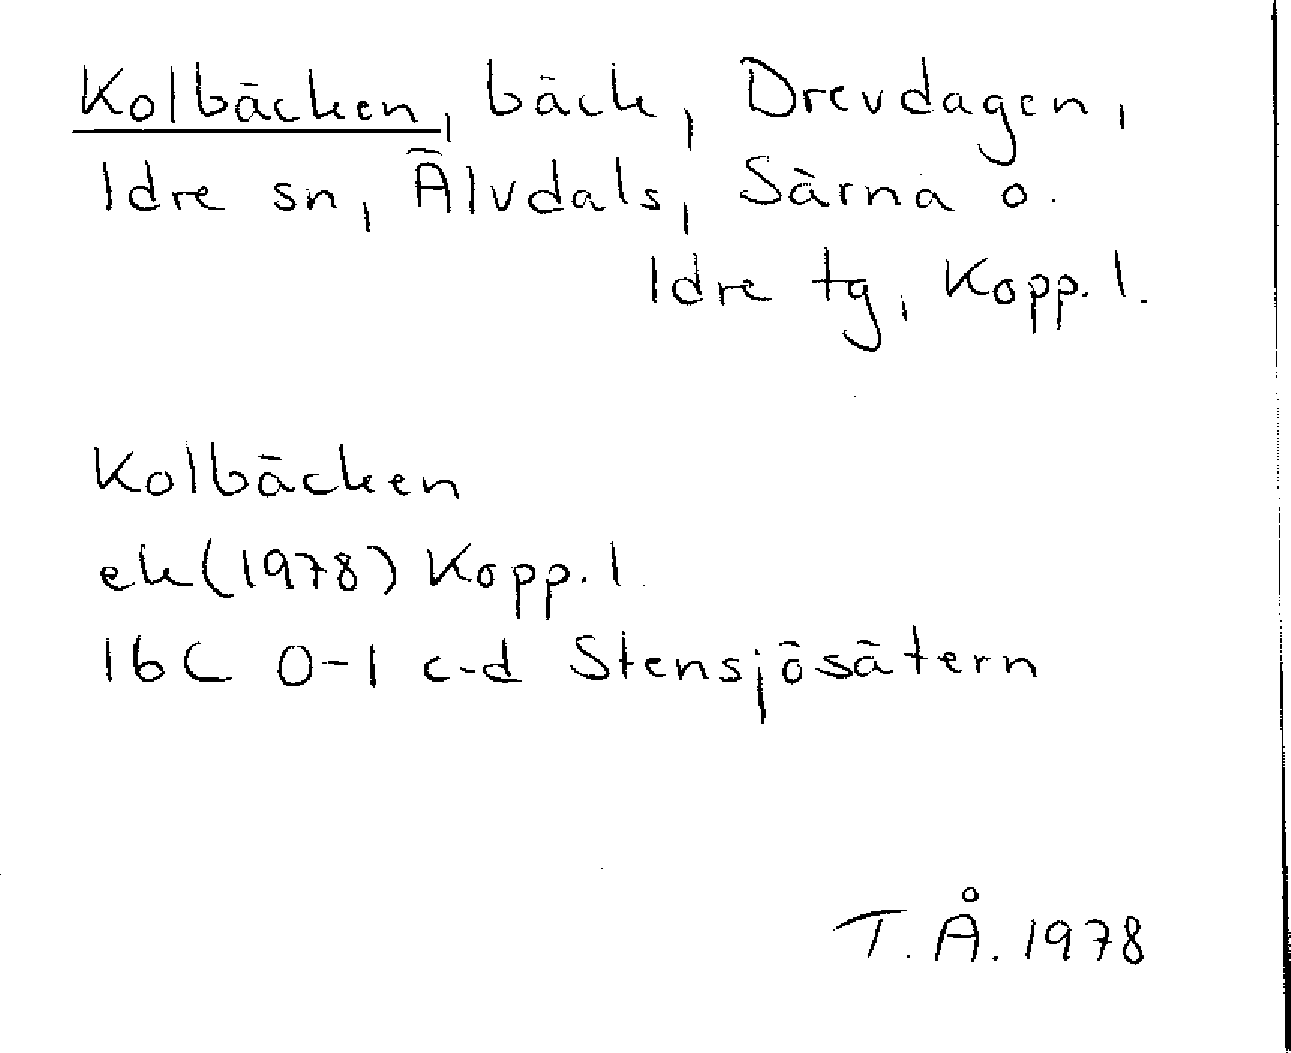 Kolbäcken, bäck, Drevdagen,
Idre sn, Älvdals, Särna o.
Idre tg, Kopp. l.
Kolbäcken
ek (1978) Kopp. l.
16C 0-1 c-d Stensjösätern
T. Å. 1978